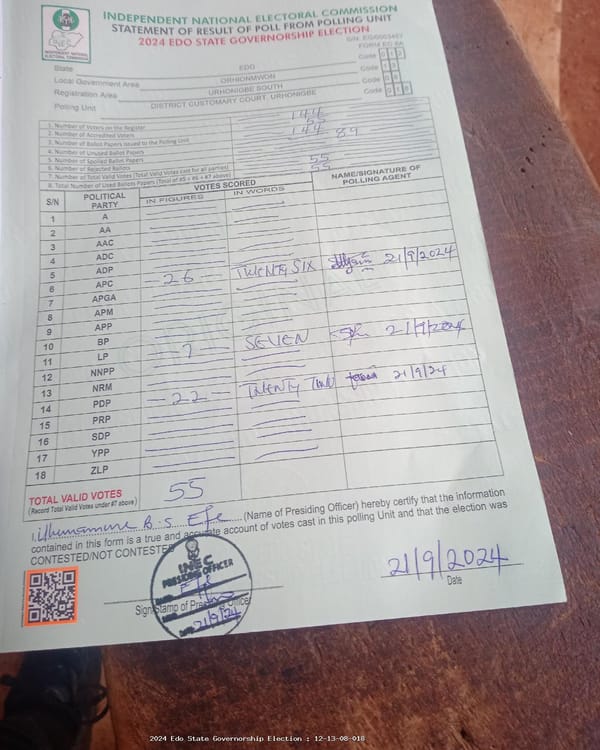 INDEPENDENT NATIONAL ELECTORAL COMMISSION
STATEMENT OF RESULT OF POLL FROM POLLING UNIT
2024 EDO STATE GOVERNORSHIP ELECTION
FORM EC 8A
State EDO Code 12
Local Government Area ORHIONMWON Code 13
Registration Area URHONIGBE SOUTH Code 08
Polling Unit DISTRICT CUSTOMARY COURT, URHONIGBE Code 018
1. Number of Voters on the Register 144
2. Number of Accredited Voters
3. Number of Ballot Papers Issued to the Polling Unit 144
4. Number of Unused Ballot Papers 89
5. Number of Spoiled Ballot Papers
6. Number of Rejected Ballots
7. Number of Total Valid Votes (Total Valid Votes cast for all parties) 55
8. Total Number of Used Ballots Papers (Total of #5 + #6 + #7 above)
S/N POLITICAL PARTY VOTES SCORED NAME/SIGNATURE OF POLLING AGENT
IN FIGURES IN WORDS
1 A
2 AA
3 AAC
4 ADC
5 ADP
6 APC 26 TWENTY SIX 21/9/2024
7 APGA
8 APM
9 APP
10 BP
11 LP 7 SEVEN 21/9/2024
12 NNPP
13 NRM
14 PDP 22 TWENTY TWO 21/9/24
15 PRP
16 SDP
17 YPP
18 ZLP
TOTAL VALID VOTES 55
(Record Total Valid Votes under #7 above)
I, B. S Efe (Name of Presiding Officer) hereby certify that the information
contained in this form is a true and accurate account of votes cast in this polling Unit and that the election was
CONTESTED/NOT CONTESTED
INEC
PRESIDING OFFICER
21/9/24
Sign/Stamp of Presiding Officer
21/9/2024
Date
2024 Edo State Governorship Election : 12-13-08-018